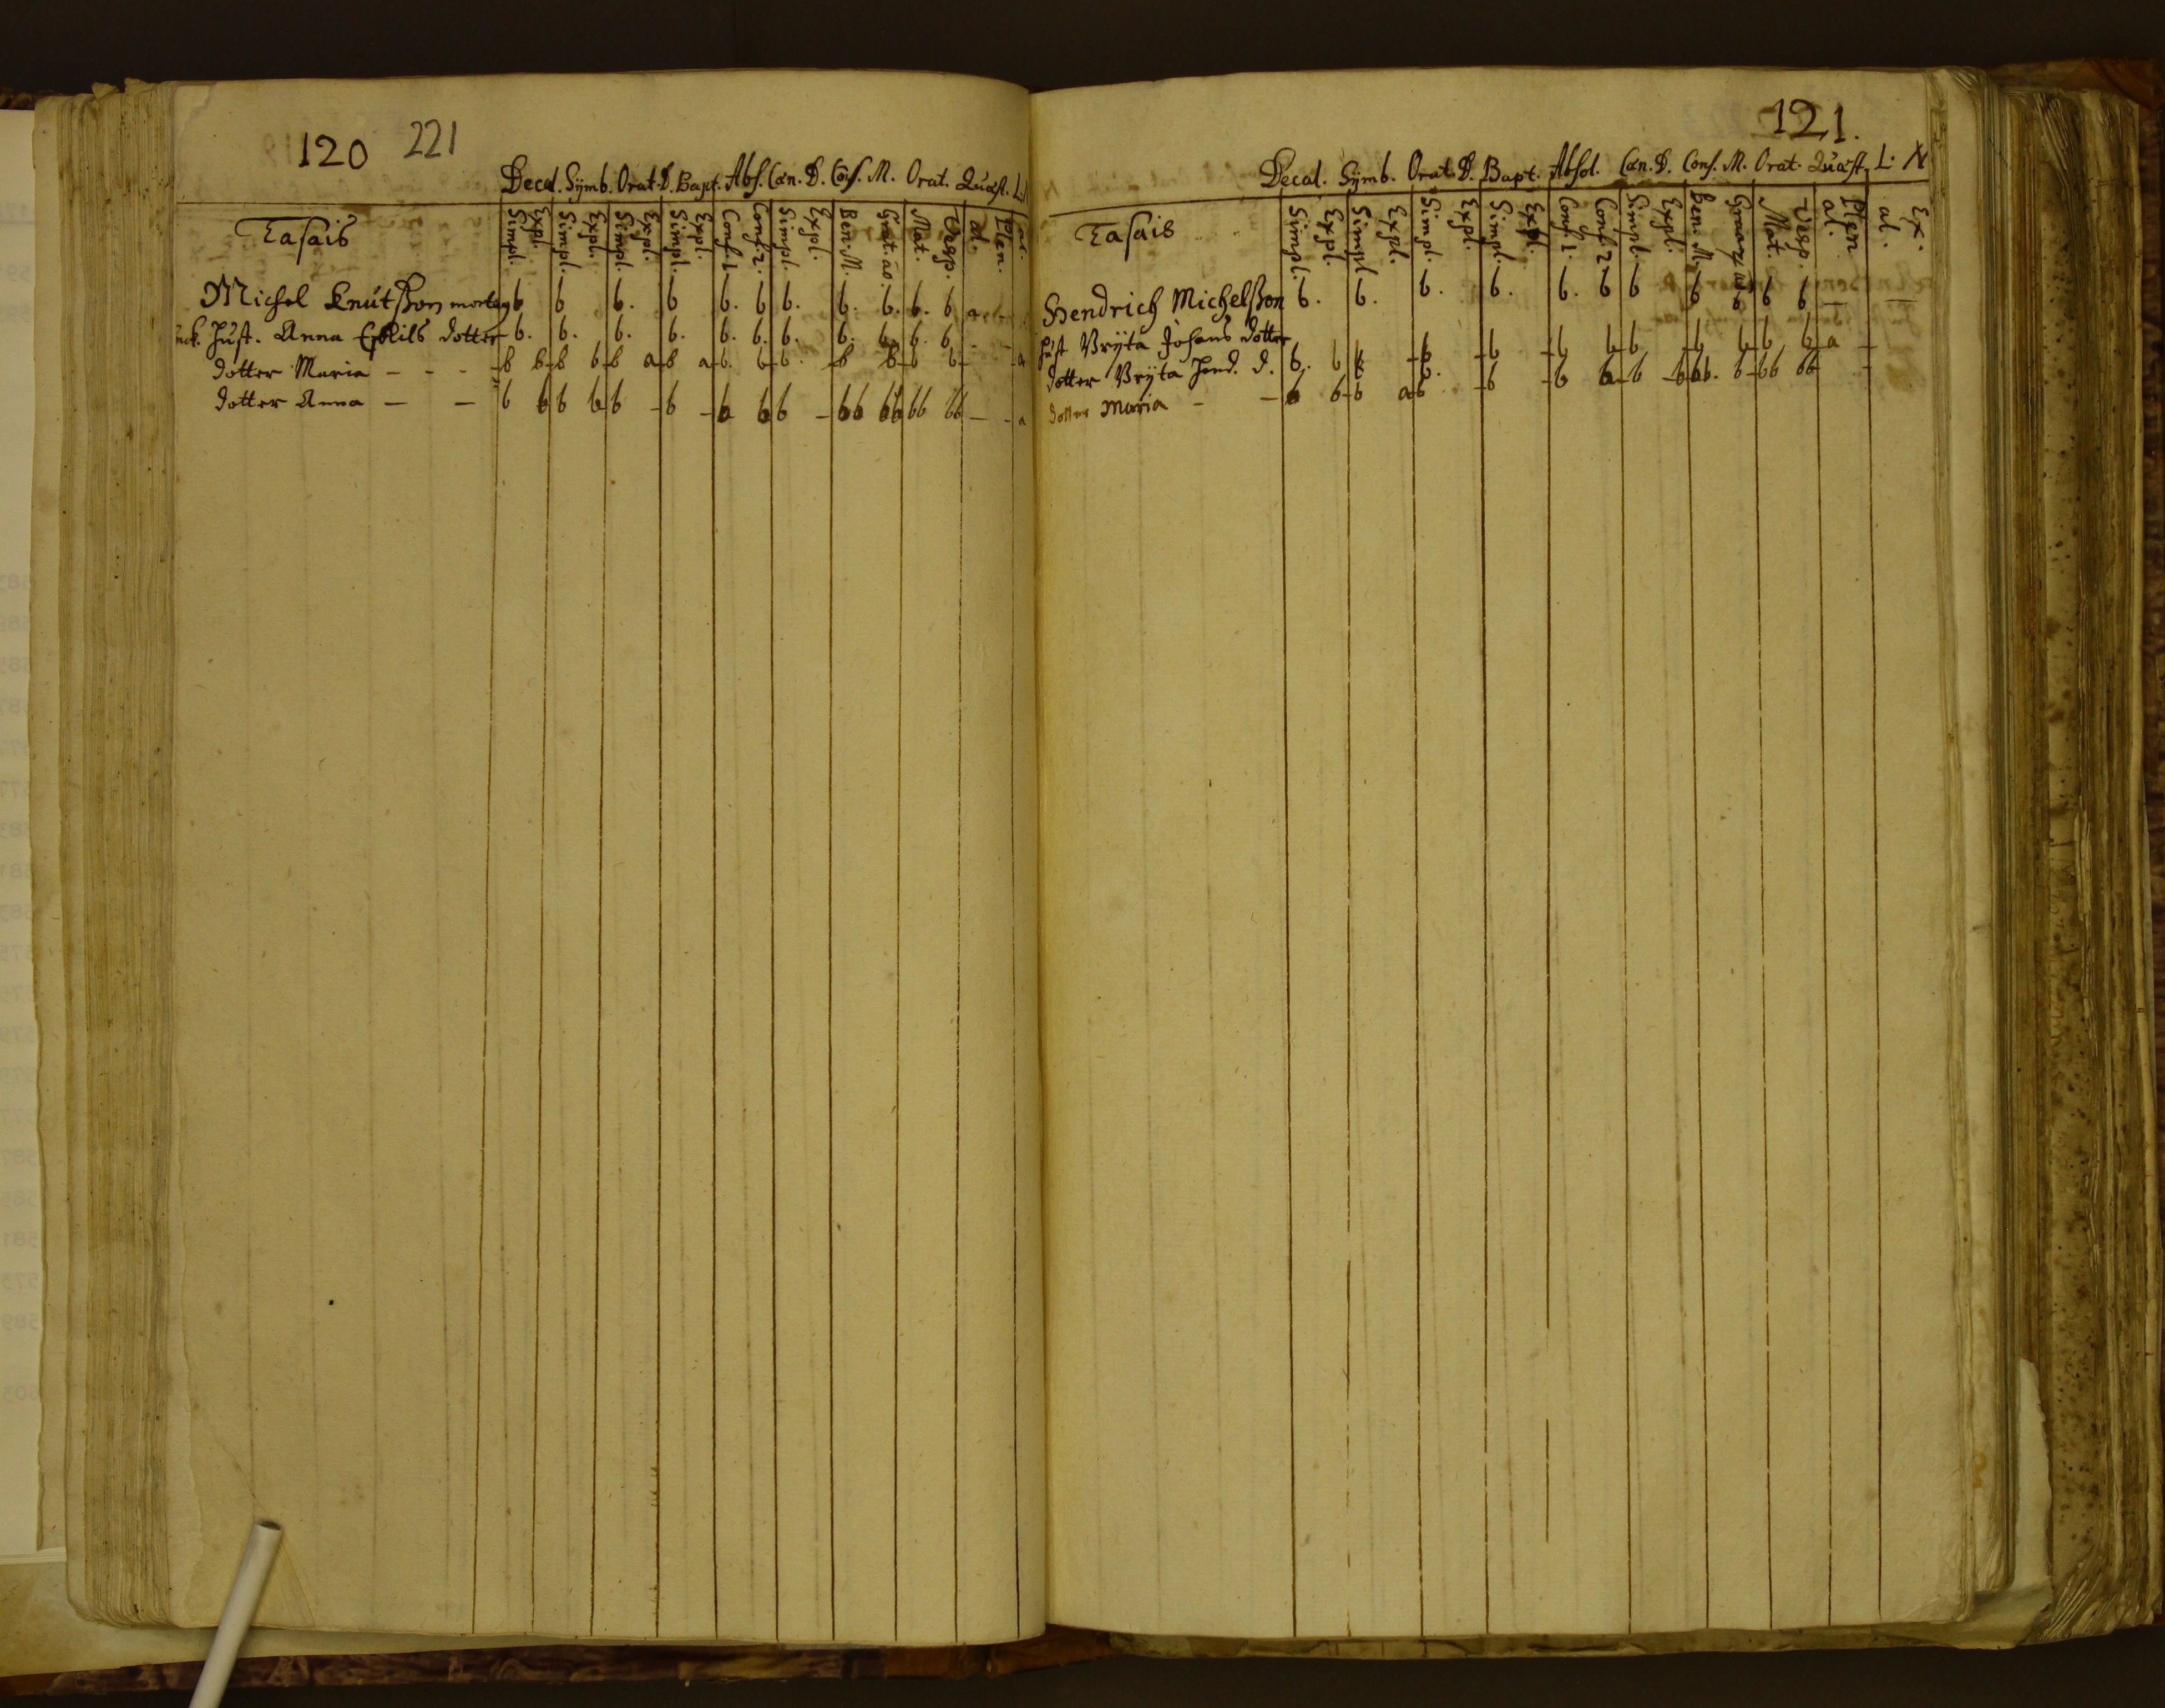 120 221
Decal. Symb. Orat. D. Bapt. Abs. Cœn. D. Conf. M. Orat. Quæst. L.
Tasais Simpl. Expl. Simpl. Expl. Simpl. Expl. Simpl. Expl. Conf. 1 Conf. 2. Simpl. Expl. Ben. M. Grat. Mat. Vesp. al. Plen.
Michel Knutsson b b b. b b. b b. b. b. b. b a
Hust. Anna Eskils dotter b. b. b. b. b. b. b. b. b. b. b
dotter Maria - - - b b b b b a b a b. b b. b b b b - a
dotter Anna - - b b b b b - b - b b b - bb bb bb bb - - a
121.
Decal. Symb. Orat. D. Bapt. Absol. Cœn. D. Conf. M. Orat. Quæst. L. N
Tasais Simpl. Expl. Simpl. Expl. Simpl. Expl. Simpl. Expl. Conf. 1. Conf. 2 Simpl. Expl. Ben. M. Mat. Vesp. al. Plen al. Ex.
Hendrich Michelsson b. b. b. b. b. b b b b b b - -
Hust Bryta Johans dotter b b b b b b b b b a -
dotter Bryta Hend. d. b. b b
dotter Maria - - b b b a b